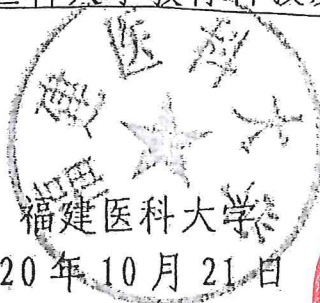 福建医科大学
福建医科大学
20年10月21日